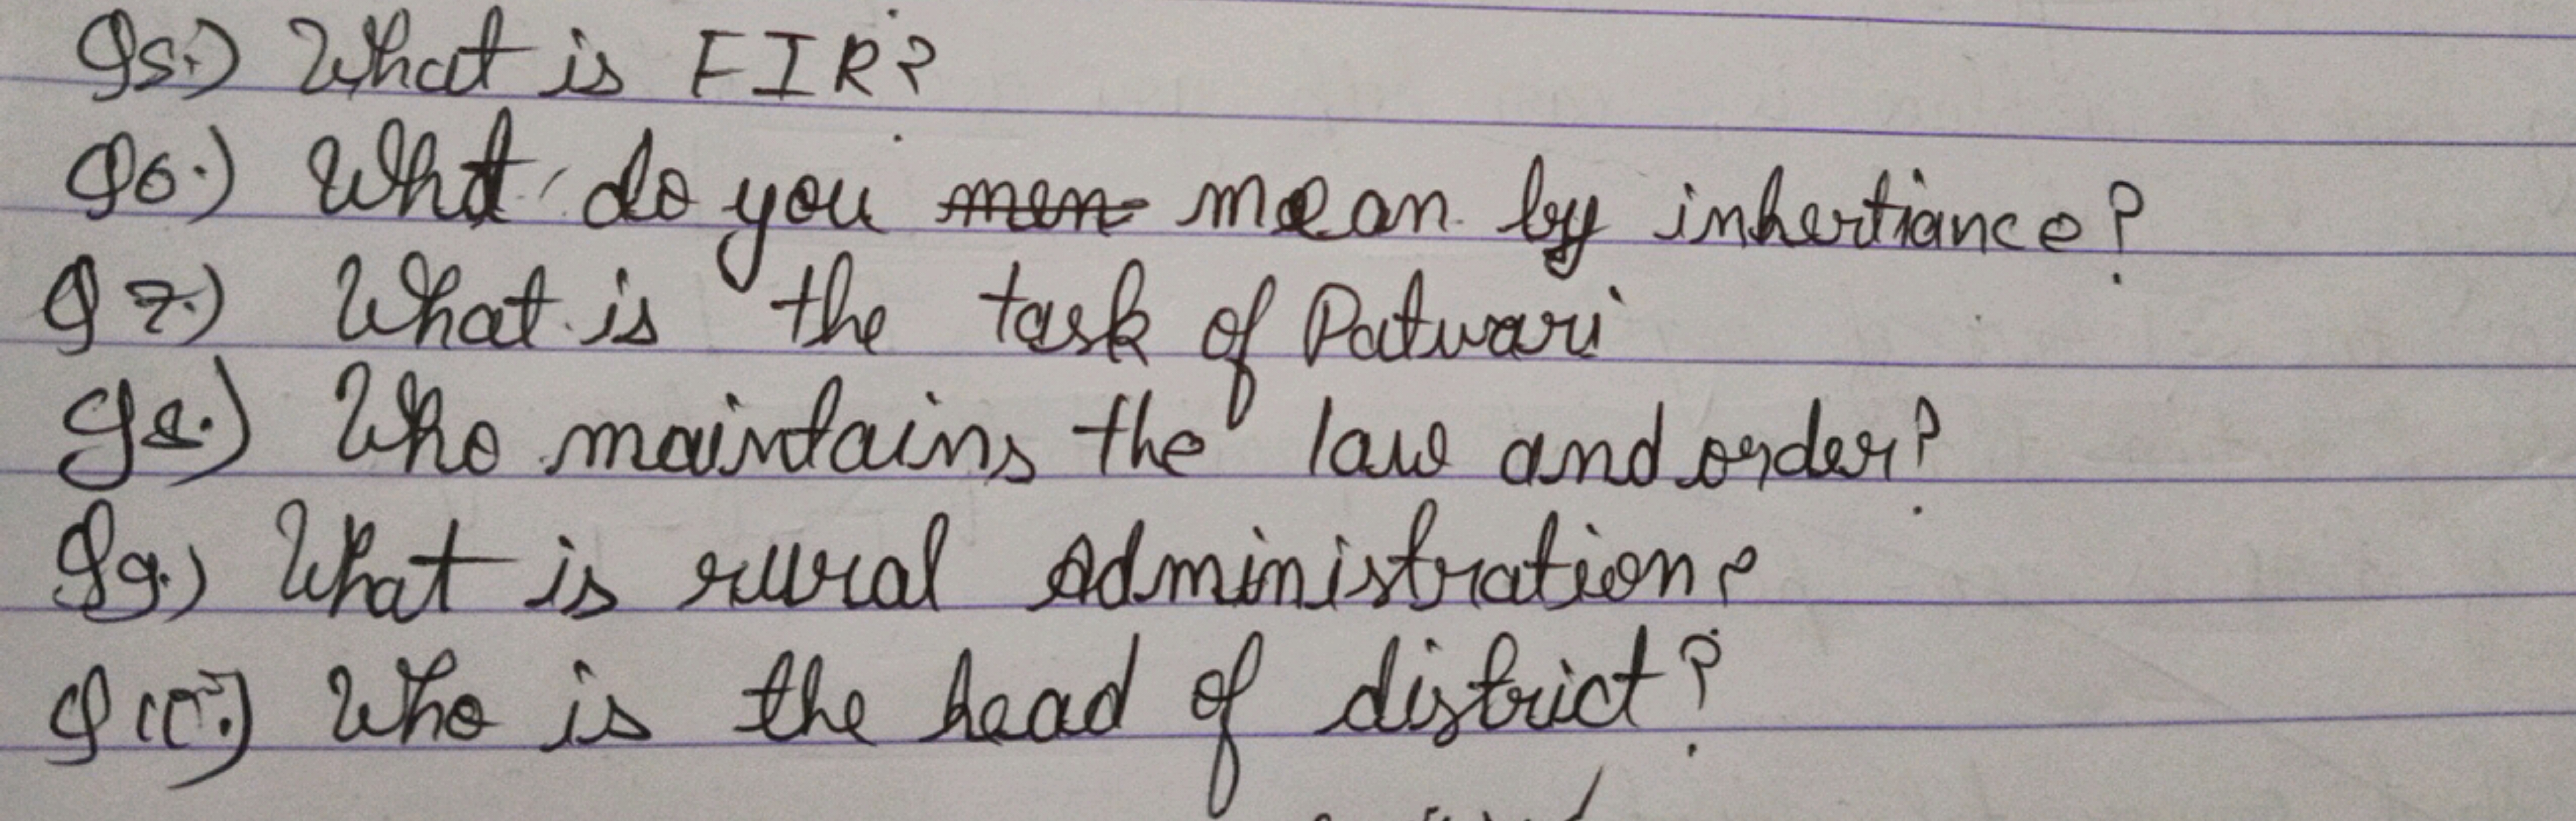 Q5.) What is FIR?
Q6.) What do you men mean by inhertiance?
Q7.) What is the task of Patwari
Q8.) Who maintains the law and order?
Q9.) What is rural Administration?
Q10.) Who is the head of district?